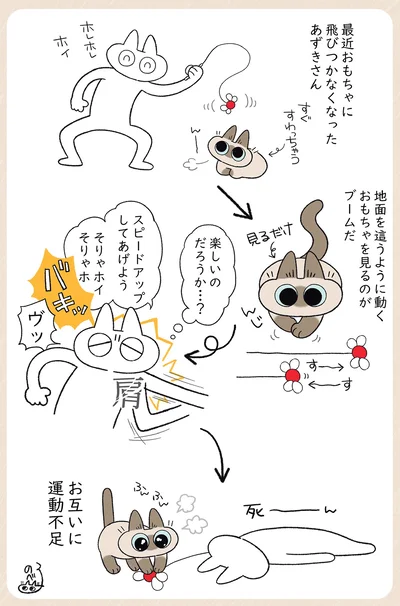 最近おもちゃに
飛びつかなくなった
あずきさん
ホレホレ
ホイ
んー
すぐ
すわっちゃう
地面を這うように動く
おもちゃを見るのが
ブームだ
見るだけ
んふ
す〜→
←〜す
楽しいの
だろうか…?
スピードアップ
してあげよう
そりゃホイ
そりゃホ
バキッ
ヴッ
肩
お互いに
運動不足
ふんふん
死――ん